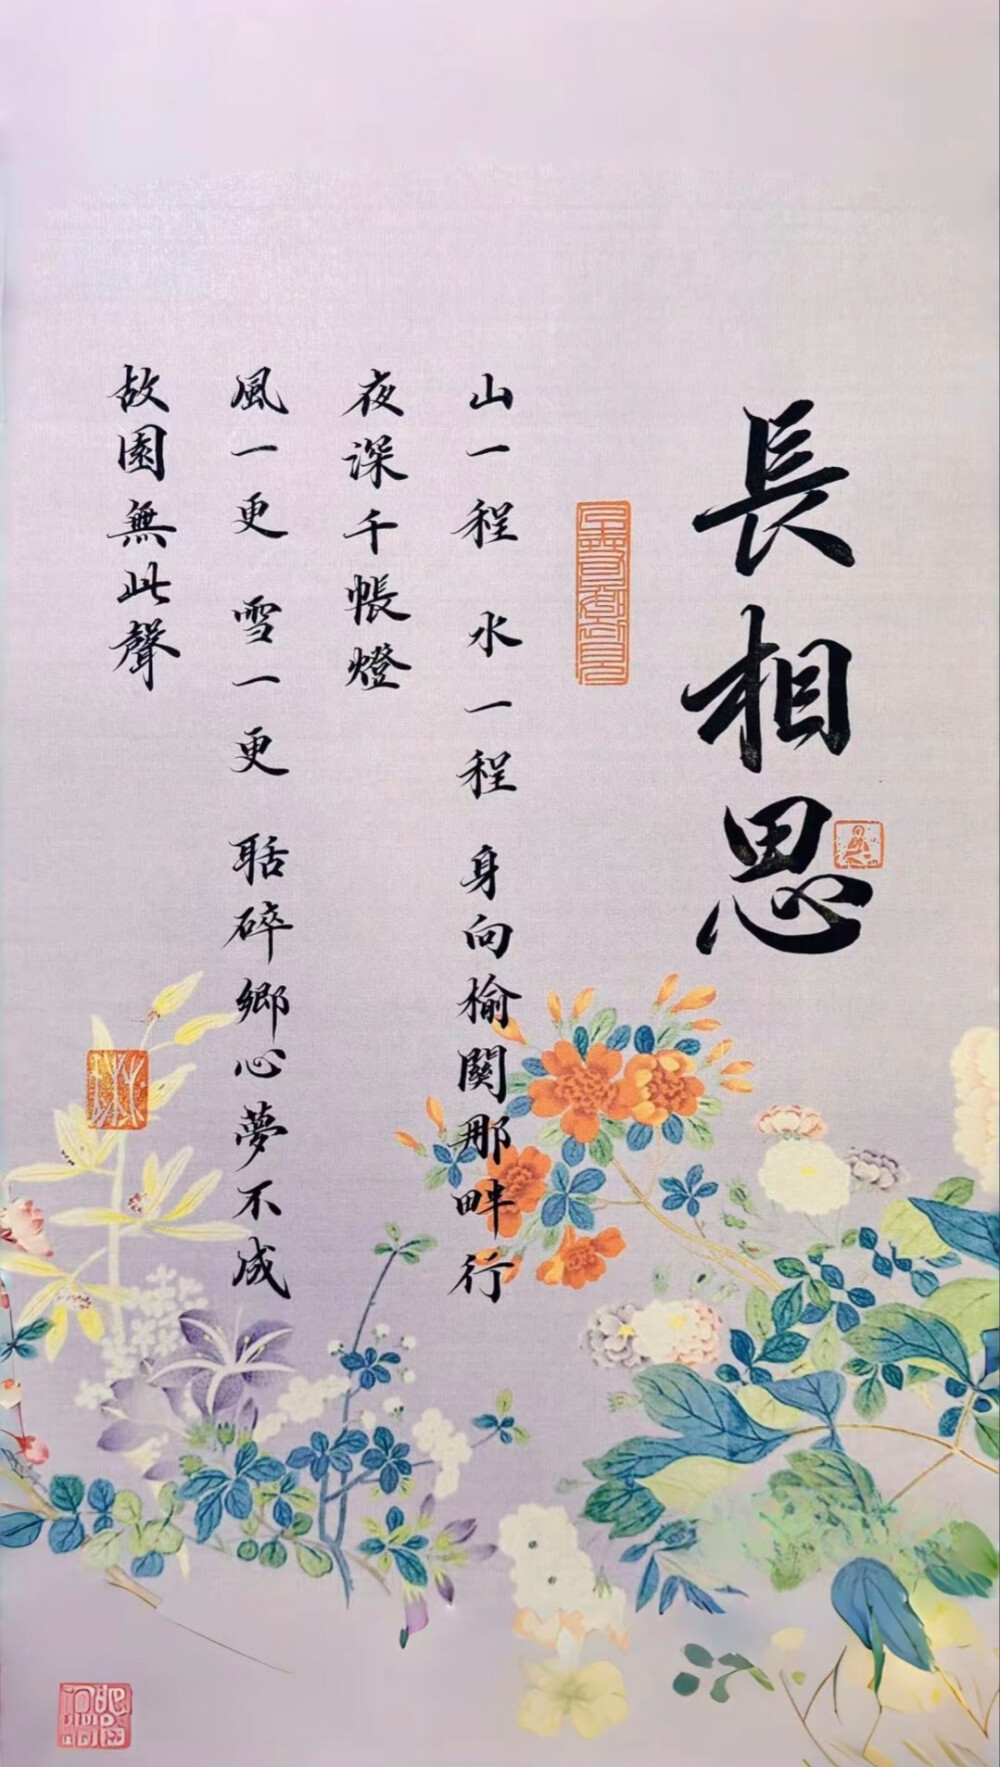 長相思
山一程 水一程 身向榆關那畔行
夜深千帳燈
風一更 雪一更 聒碎鄉心夢不成
故園無此聲